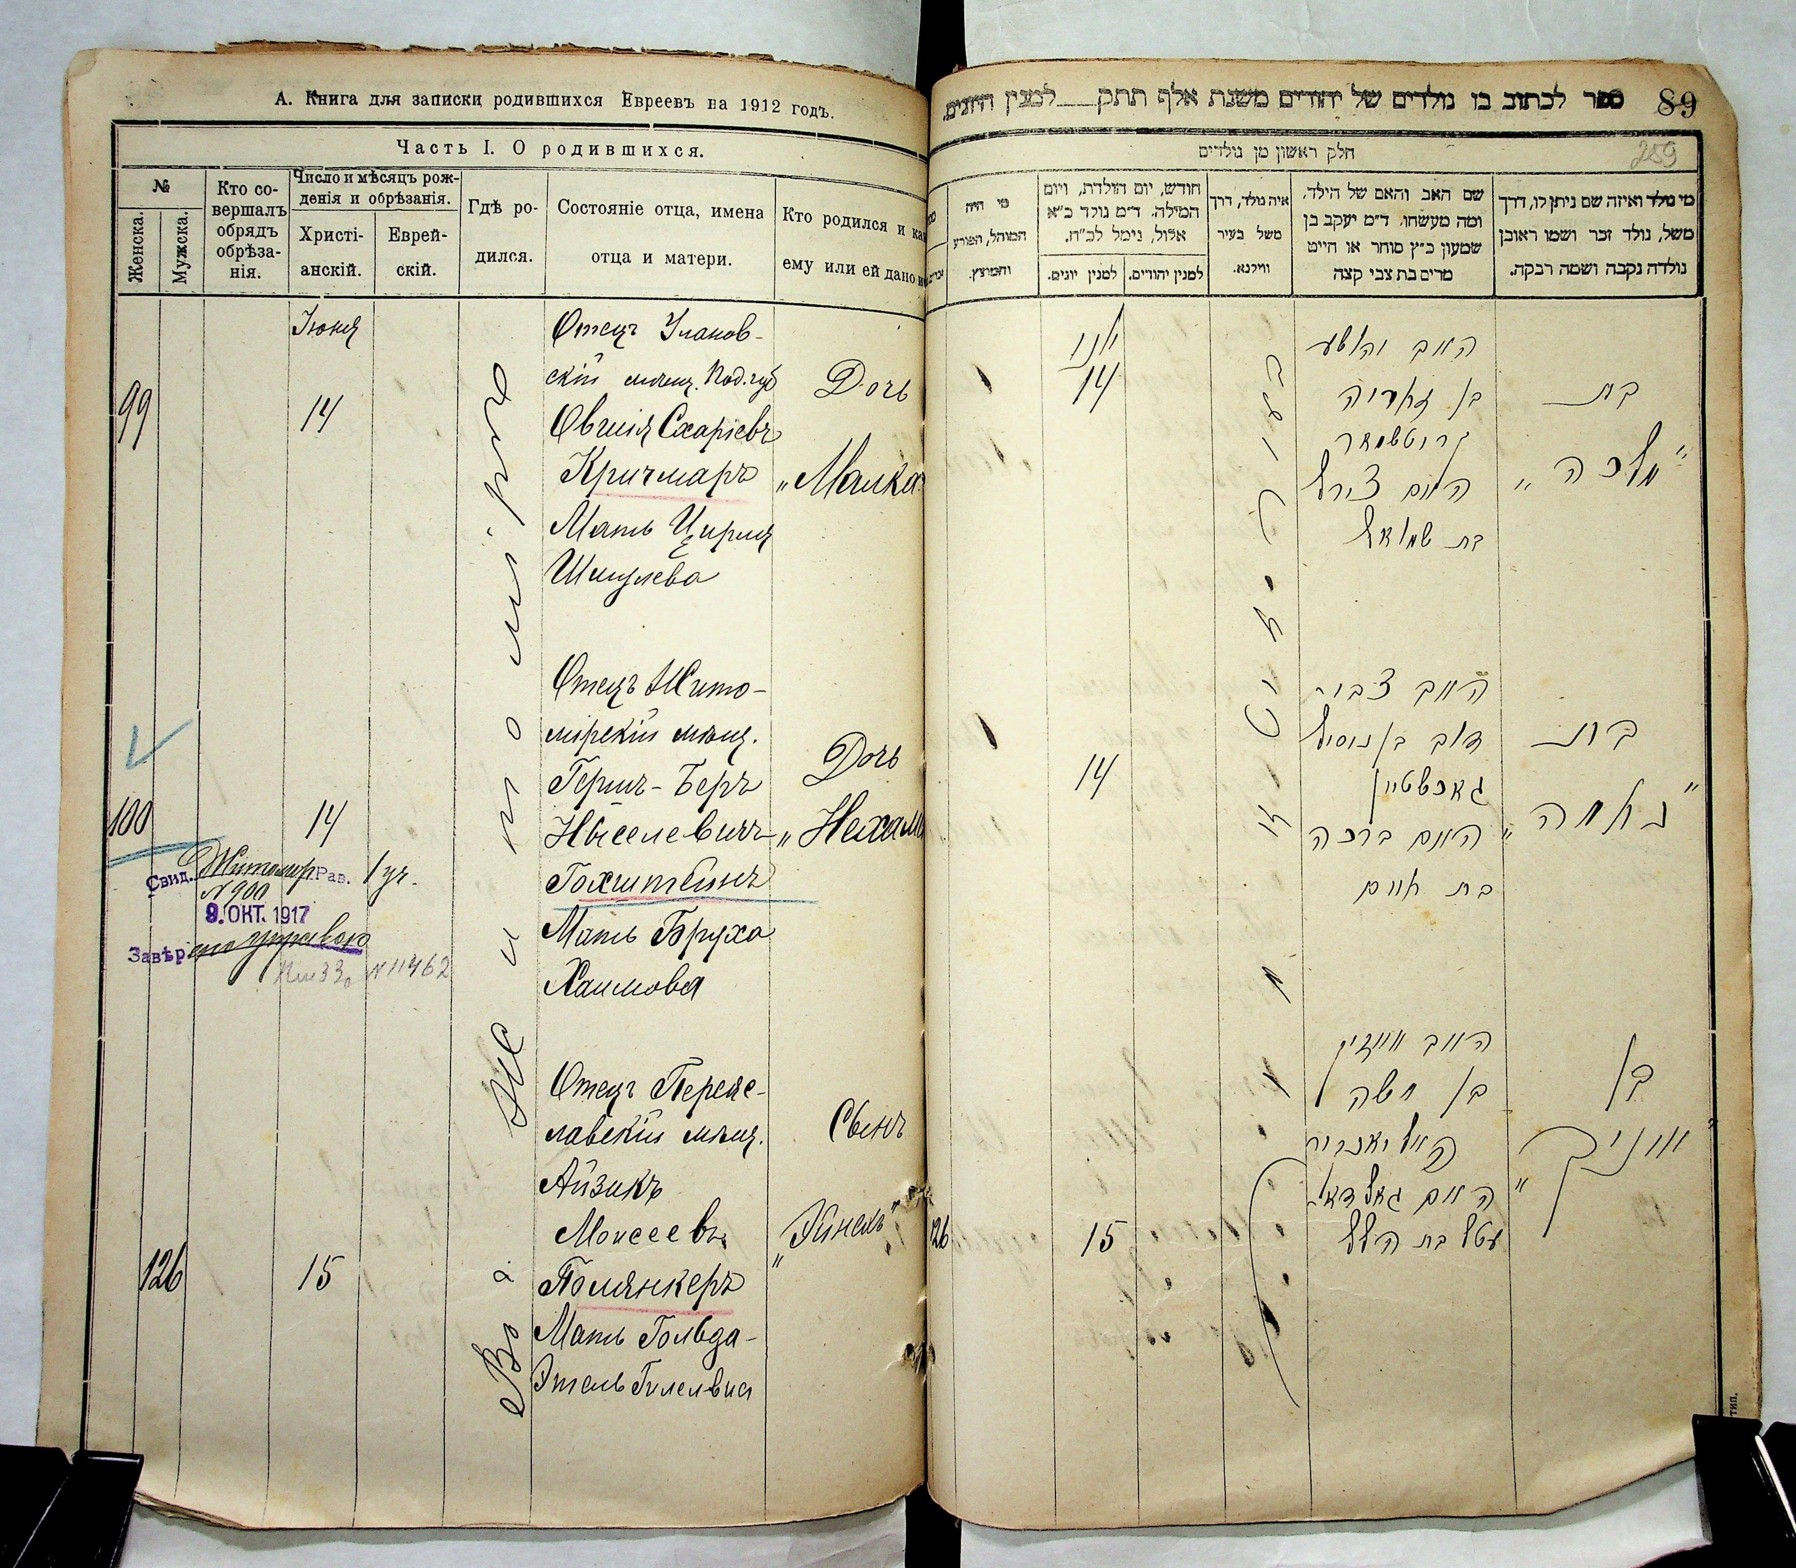 А. Книга для записки родившихся Евреевъ на 1912 годъ.
Часть I. О родившихся.
№
Женска.
Мужска.
Кто со-
вершалъ
обрядъ
обрѣза-
нія.
Число и мѣсяцъ рож-
денія и обрѣзанія.
Христі-
анскій.
Еврей-
скій.
Гдѣ ро-
дился.
Состояніе отца, имена
отца и матери.
Кто родился и ка
ему или ей дано и
Іюня
99
14
Отецъ Улановъ-
скій мѣщ. Под. губ
Овшія Схаріевъ
Кричмаръ
Мать Цирля
Шмулева
Дочь
„Малка
Житомирѣ
100
14
Отецъ Жито-
мірскій мѣщ.
Герш-Беръ
Ныселевичъ
Гохштейнъ
Мать Бруха
Хаимова
Дочь
„Нехама
Свид. Житомир. Рав. 1 уч.
N 900
9. ОКТ. 1917
Завѣр
N 11462
126
15
Отецъ Переяс-
лавскій мѣщ.
Айзикъ
Моисеевъ
Полянкеръ
Мать Гольда-
Этель Гилелвна
Сынъ
„Эйнехъ"
Во
ספר לכתוב בו נולדים של יהודים משנת אלף תתק למנין היונים.
89
259
חלק ראשון מן נולדים
מי נולד ואיזה שם ניתן לו, דרך
משל, נולד זכר ושמו ראובן
נולדה נקבה ושמה רבקה.
שם האב והאם של הילד,
ומה מעשהו. ד״מ יעקב בן
שמעון כ״ץ סוחר או חייט
מרים בת צבי קצה
איה נולד, דרך
משל בעיר
ווילנא.
חודש, יום הולדת, ויום
המילה. ד״מ נולד כ״א
אלול, נימל לכ״ח.
למנין יהודים.
למנין יונים.
מי היה
המוהל, הפורע
והמוצץ.
יוני
14
האב יהושע
בן זכריה
קריטשמאר
האם צירל
בת שמואל
בת
„מלכה"
14
האב צבי
דוב בן ניסיל
גאכשטיין
האם ברכה
בת חיים
בת
„נחמה"
126
15
האב אייזיק
בן משה
האם גאלדא
עטל בת הלל
בן
тип.